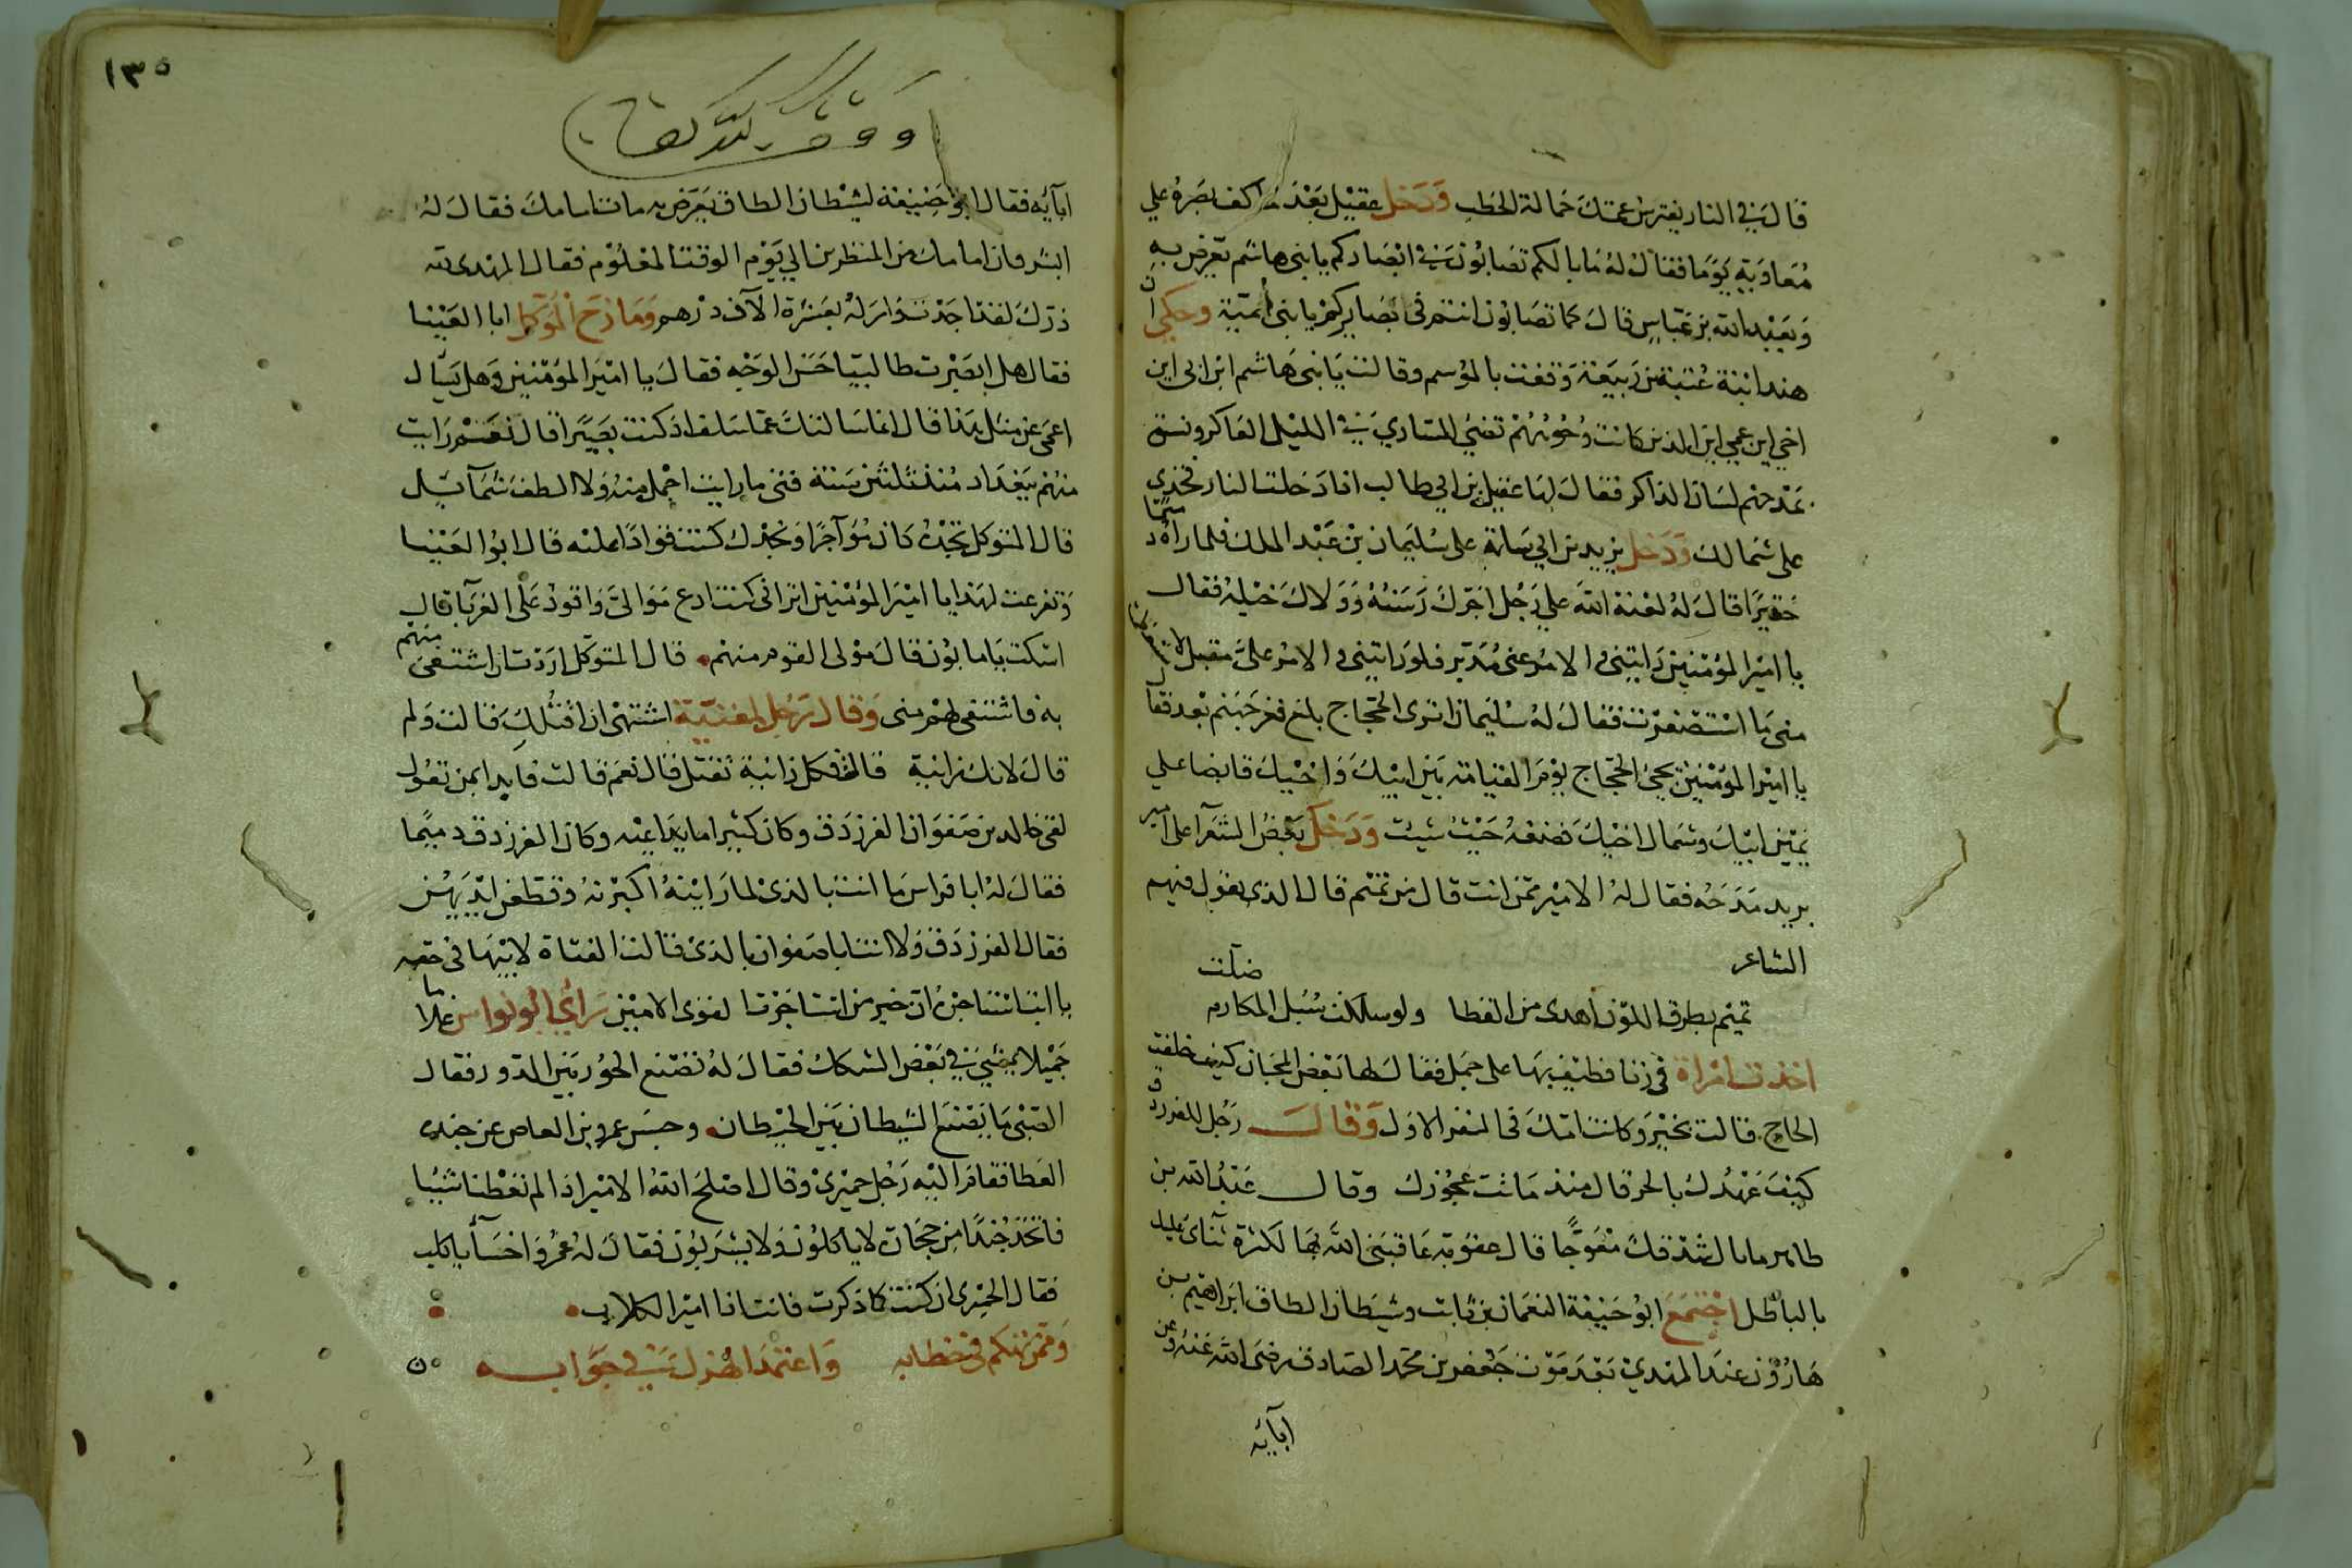 قال في النار يفترش عمتك حمالة الحطب ودخل عقيل بعد ما كف بصره علي
معاوية يوما فقال له ما بالكم تصابون في ابصاركم يا بني هاشم تعرض به
وبعبد الله بن عباس قال كما تصابون انتم في بصايركم يا بني أمية وحكي ان
هند ابنة عتبة بن ربيعة وقفت بالموسم وقالت يا بني هاشم اين ابي اين
اخي اين عمي اين الذين كانت وجوههم تضيء للساري في الليل العاكر
تمدحهم لسان الذاكر فقال لها عقيل بن ابي طالب اذا دخلت النار فخذي
على شمالك ودخل يزيد بن ابي على سليمان بن عبد الملك فلما رآه دميما
حقيرا قال له لعنة الله علي رجل اجرك رسنه وولاك خيله فقال
يا امير المؤمنين رايتني والامر عني مدبر فلو رايتني والامر علىّ مقبل لاستعظمت
مني ما استصغرت فقال له سليمان اترى الحجاج بلغ قعر جهنم بعد فقال
يا امير المؤمنين يجيء الحجاج يوم القيامة بين ابيك واخيك قابضا علي
يمين ابيك وشمال اخيك فضعه حيث شيت ودخل بعض الشعرآ على امير
يريد مدحه فقال له الامير ممن انت قال من تميم قال الذي يقول فيهم
الشاعر
تميم بطرق اللؤم أهدى من القطا ولو سلكت سبل المكارم ضلّت
اخذت امراة في زنا فطيف بها على جمل فقال لها بعض المجان كيف خلفت
الحاج قالت بخير وكانت امّك في النفر الاول وقال رجل للفرزدق
كيف عهدك بالحر قال منذ ماتت عجوزك وقال عبد الله بن
طاهر ما بال شدقك معوجًّا قال عقوبة عاقبني الله بها لكثرة ثنائي عليك
بالباطل اجتمع ابو حنيفة النعمان بن ثابت وشيطان الطاق ابراهيم بن
هارون عند المهدي بعد موت جعفر بن محمد الصادق رضي الله عنه وعن
آبائه
١٣٥
ابآيه فقال ابو حنيفة لشيطان الطاق يعرض به مات امامك فقال له
ابشر فان امامك من المنظرين الي يوم الوقت المعلوم فقال المهدي لله
درك لقد اجدت وامر له بعشرة الآف درهم ومازح المتوكل ابا العينا
فقال هل ابصرت طالبيا حسن الوجه فقال يا امير المؤمنين وهل يسال
اعمى عن مثل هذا قال انما سالتك عما سلف اذ كنت بصيرا قال نعم رايت
منهم ببغداد منذ ثلثين سنة فتى ما رايت اجمل منه ولا الطف شمآيل
قال المتوكل تجده كان مؤآجرًا وتجدك كنت قوادًا عليه قال ابو العينا
وتفرغت لهذا يا امير المؤمنين اتراني كنت ادع مواليّ واقود على الغربآ قال
اسكت يا مابون قال مولى القوم منهم قال المتوكل اردت ان اشتفى منهم
به فاشتفى لهم مني وقال رجل لمغنية اشتهى ان اقتلك قالت ولم
قال لانك زانية قالت فكل زانية تقتل قال نعم قالت فابدا بمن تعول
لقى خالد بن صفوان الفرزدق وكان كثيرا ما يداعبه وكان الفرزدق دميما
فقال له ابا فراس ما انت بالذي لما راينه اكبرنه وقطعن ايديهن
فقال الفرزدق ولا انت ابا صفوان بالذي قالت الفتاة لابيها في حقه
يا ابت استاجره ان خير من استاجرت القوى الامين راي ابو نواس غلاما
جميلا يمشي في بعض السكك فقال له تصنع الحور بين الدور فقال
الصبى ما يصنع الشيطان بين الحيطان وحبس عمرو بن العاص عن جنده
العطا فقام اليه رجل حميري وقال اصلح الله الامير اذا لم تعطنا شيئا
فاتخذ جندًا من حجارة لا ياكلون ولا يشربون فقال له عمرو اخسأ يا كلب
فقال الحميري ان كنت كما ذكرت فانت اذا امير الكلاب
وممن تهكم في خطابه واعتمد الهزل في جوابه